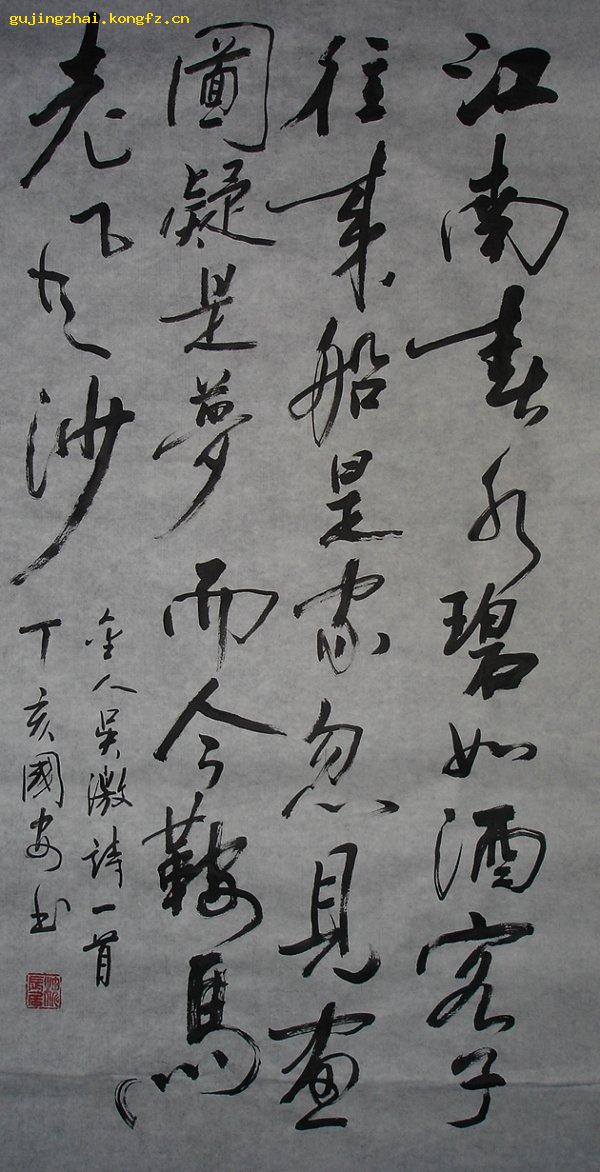 gujingzhai.kongfz.cn
江南春水碧如酒客子
往来船是家忽見画
圖凝是夢而今鞍馬
老风沙
金人吳激詩一首
丁亥國安书